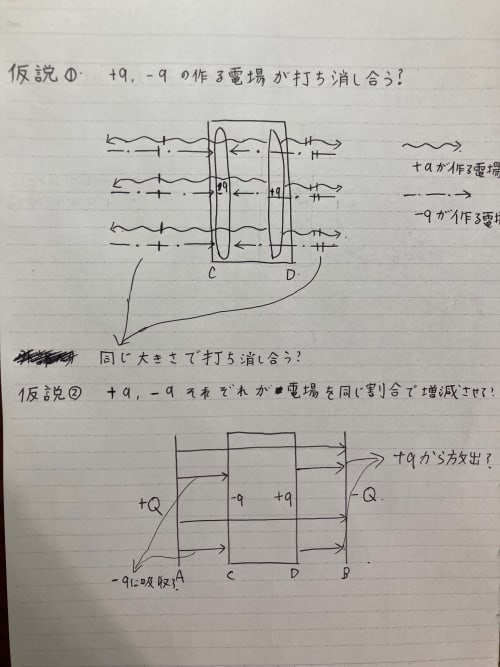 仮説①. +q, -q の作る電場が打ち消し合う?
+qが作る電場
-q +q
-qが作る電場
C D.
同じ大きさで打ち消し合う?
仮説② +q, -q それぞれが電場を同じ割合で増減させて?
+qから放出?
+Q -q +q -Q.
-qに吸収? A C D B